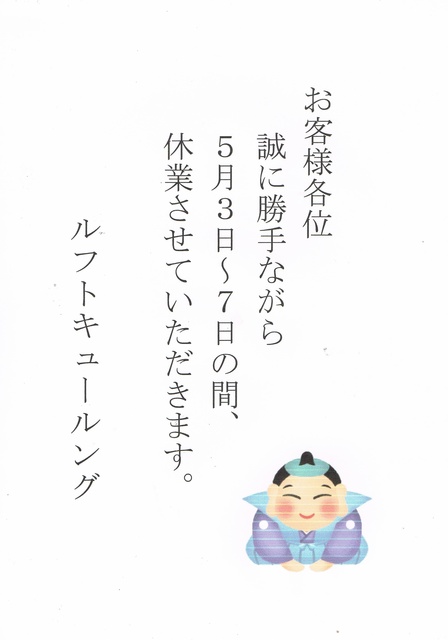 お客様各位
誠に勝手ながら
５月３日～７日の間、
休業させていただきます。
ルフトキュールング